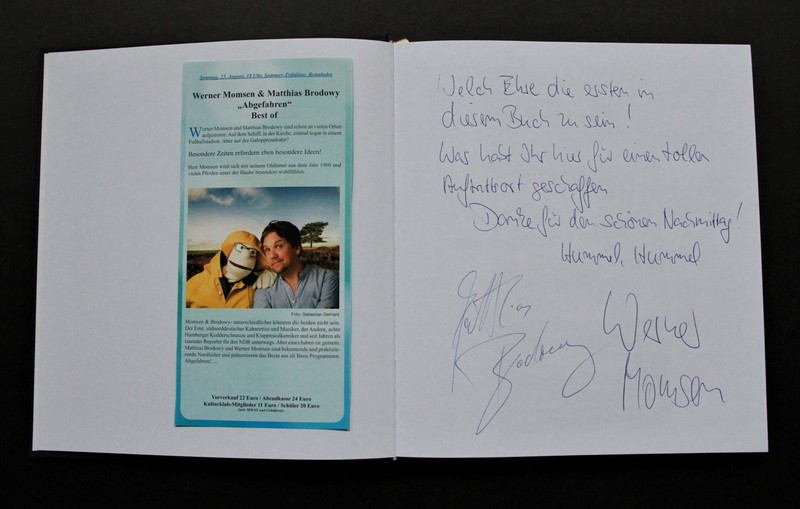 Sonntag, 23. August, 18 Uhr, Sommer-Tribüne, Rennbahn
Werner Momsen & Matthias Brodowy
„Abgefahren“
Best of
Werner Momsen und Matthias Brodowy sind schon an vielen Orten
aufgetreten: Auf dem Schiff, in der Kirche, einmal sogar in einem
Fußballstadion. Aber auf der Galopprennbahn?
Besondere Zeiten erfordern eben besondere Ideen!
Herr Momsen wird sich mit seinem Oldtimer aus dem Jahr 1966 und
vielen Pferden unter der Haube besonders wohlfühlen.
Foto: Sebastian Gerhard
Momsen & Brodowy- unterschiedlicher könnten die beiden nicht sein.
Der Eine, südnorddeutscher Kabarettist und Musiker, der Andere, echte
Hamburger Kodderschnauze und Klappmaulkomiker und seit Jahren als
rasender Reporter für den NDR unterwegs. Aber eines haben sie gemein:
Matthias Brodowy und Werner Momsen sind bekennende und praktizie-
rende Nordlichter und präsentieren das Beste aus all Ihren Programmen.
Abgefahren!...
Vorverkauf 22 Euro / Abendkasse 24 Euro
Kulturklub-Mitglieder 11 Euro / Schüler 20 Euro
Welch Ehre die ersten in
diesem Buch zu sein!
Was habt Ihr hier für einen tollen
Auftrittsort geschaffen
Danke für den schönen Nachmittag!
Hummel, Hummel
Matthias
Brodowy
Werner
Momsen